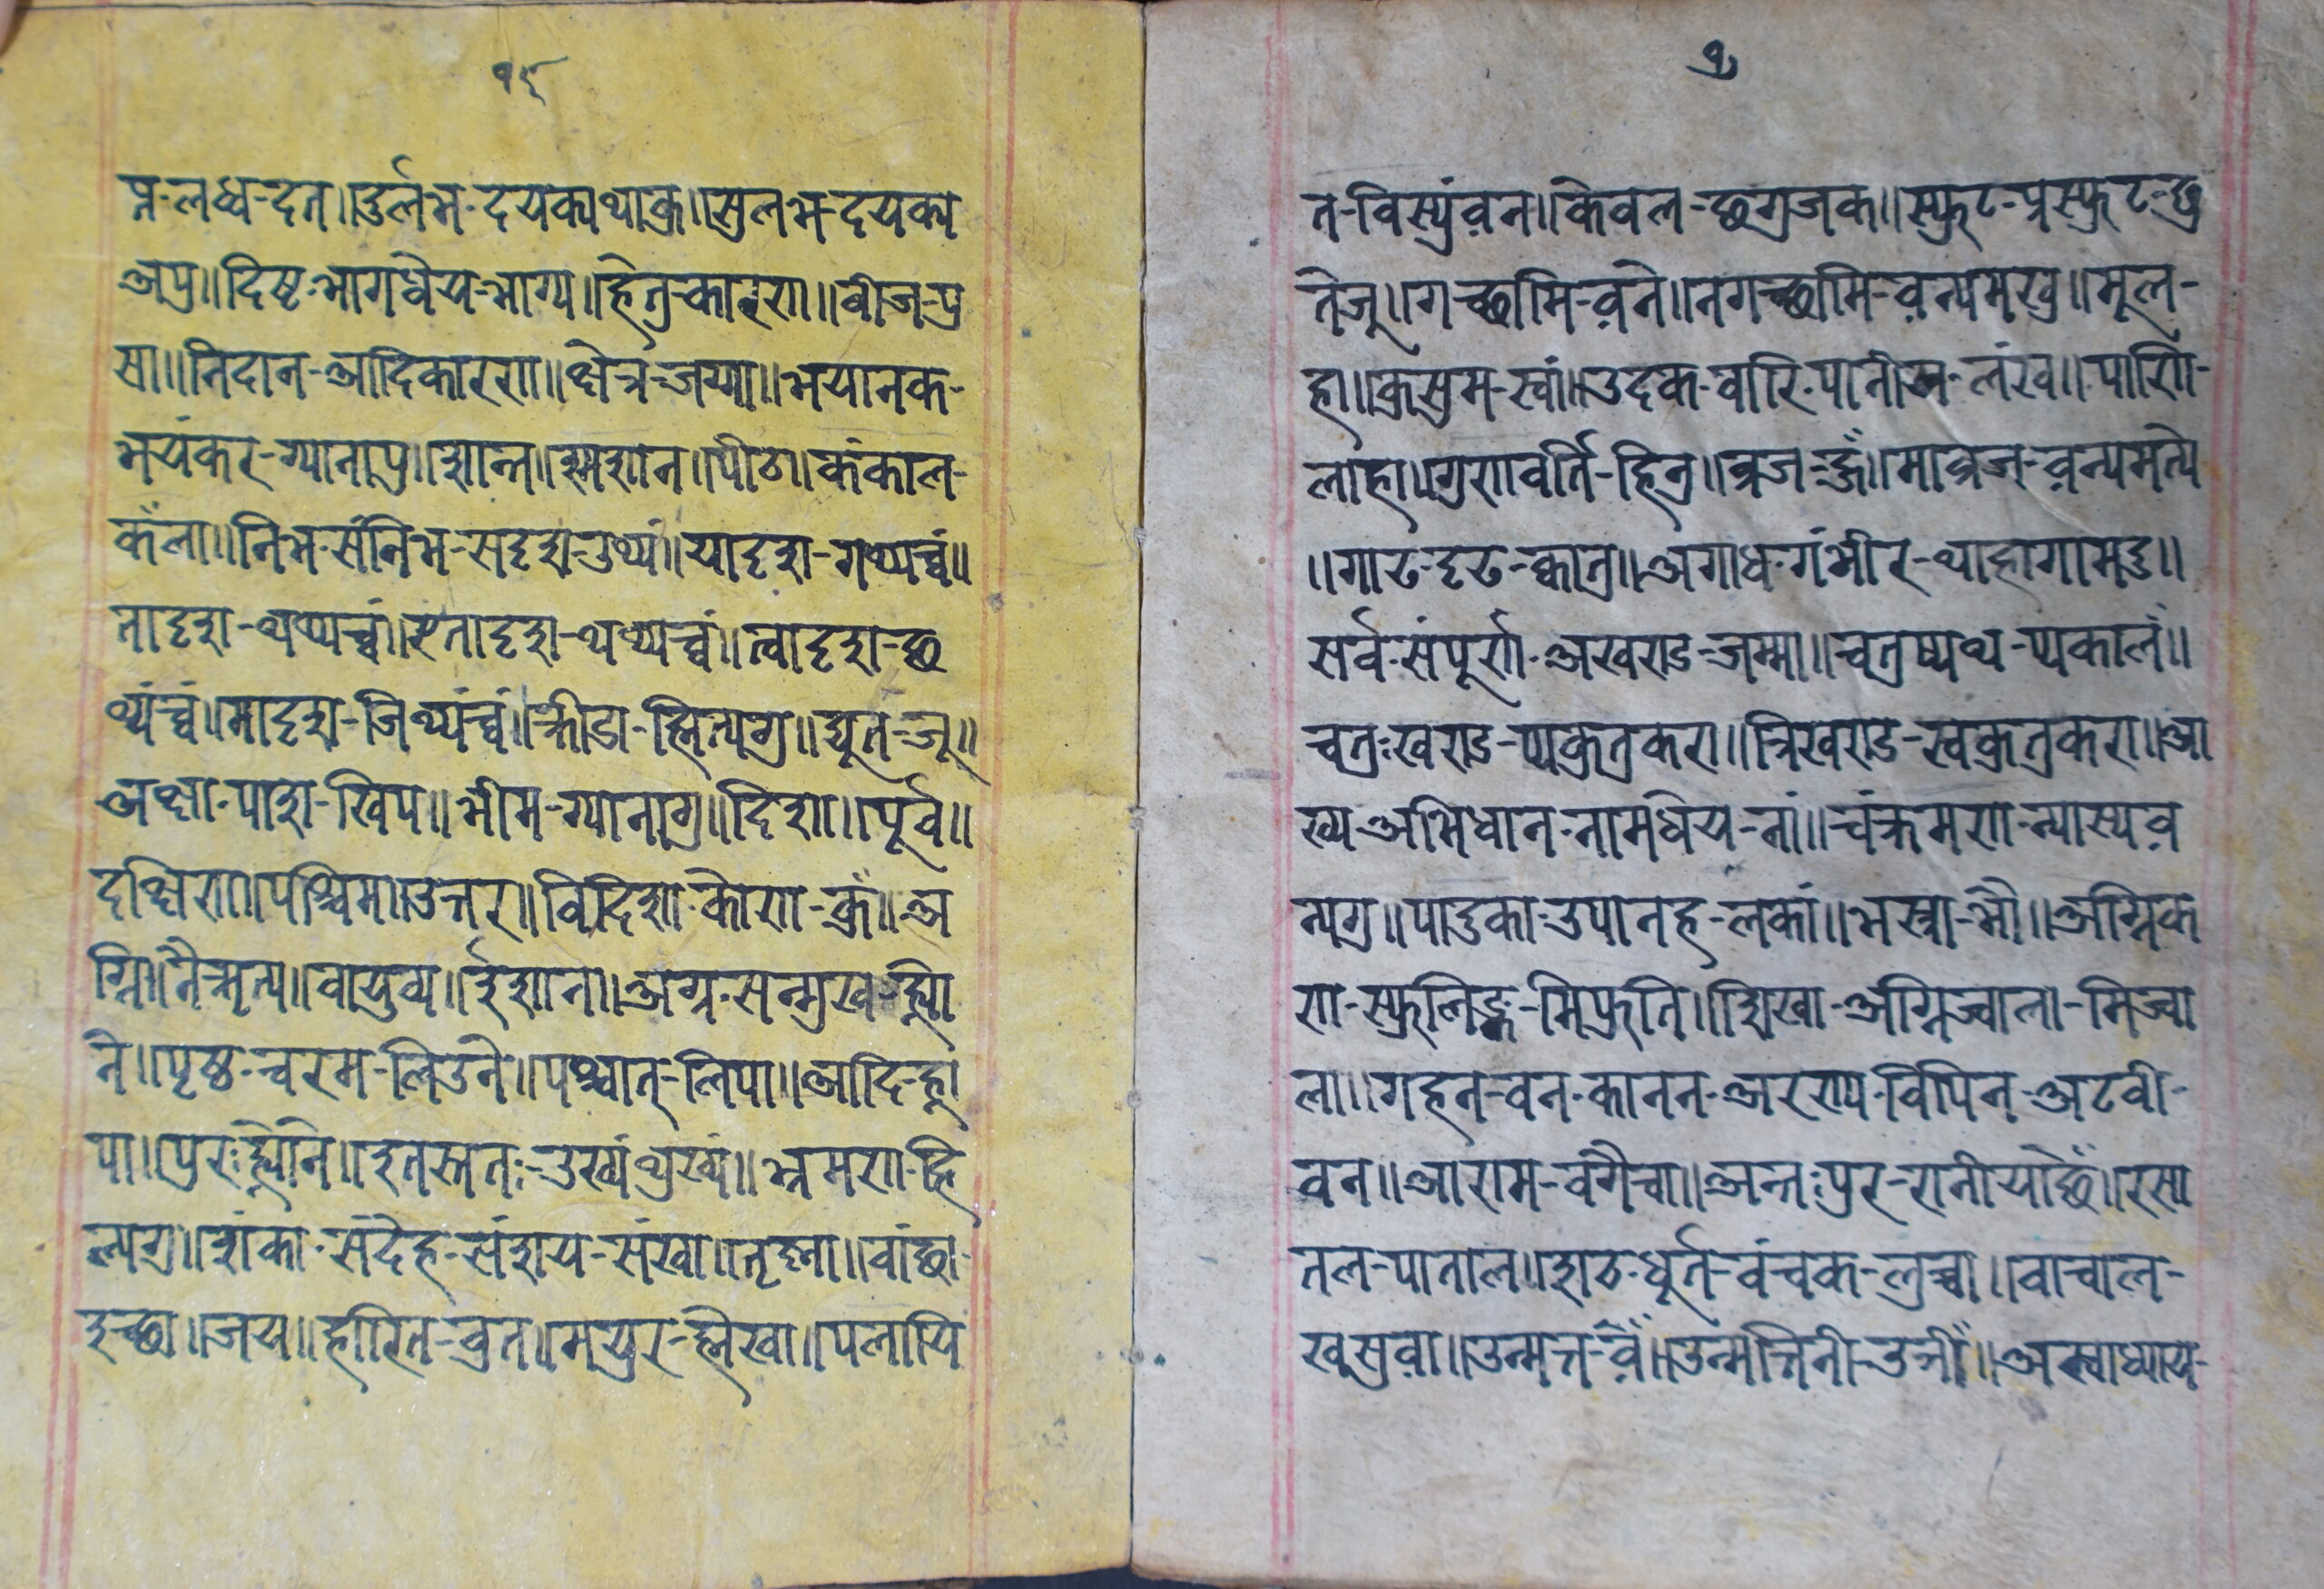 १६
प्न-लध्व-दत॥दुर्लभ-दयक्यथाकु॥सुलभ-दयक्य
अपु॥दिष्ट-भागधेय-भाग्य॥हेतु-कारण॥वीज-पु
सा॥निदान-आदिकारण॥क्षेत्र-जग्गा॥भयानक-
भयंकर-ग्यानापु॥शान्त॥श्मशान॥पीठ॥कंकाल-
कंला॥निभ-संनिभ-सदृश-उथ्यं॥यादृश-गथ्यच्वं॥
तादृश-थथ्यच्वं॥एतादृश-थथ्यच्वं॥त्वादृश-छ
थ्यंच्वं॥मादृश-जिथ्यंच्वं॥क्रीडा-ह्मितयगु॥द्यूत-जू॥
अक्षा-पाशा-खिप॥भीम-ग्यानागु॥दिशा॥पूर्व॥
दक्षिण॥पश्चिम॥उत्तर॥विदिशा-कोण-कुं॥अ
ग्नि॥नैऋत्य॥वायुव्य॥ईशान॥अग्र-सन्मुख-ह्यो
ने॥पृष्ठ-चरम-लिउने॥पश्चात्-लिपा॥आदि-ह्रा
पा॥पुर-ह्योने॥इतस्ततः-उख्यंथुख्यं॥भ्रमण-हि
ल्यगु॥शंका-संदेह-संशय-संखा॥तृष्णा॥वांछा-
इच्छा॥जय॥हारित-वुत॥मयुर-ह्मैखा॥पलायि
७
त-विस्यंवन॥केवल-छगुजक॥स्फुट-प्रस्फुट-छु
तेजू॥गच्छामि-वने॥नगच्छामि-वन्यमखु॥मूल-
हा॥कुसुम-स्वां॥उदक-वारि-पानीय-लंख॥पाणि-
लाहा॥गुणवर्ति-हितु॥व्रज-हुँ॥माव्रज-वन्यमत्ये
॥गाढ-दृढ-क्वातु॥अगाध-गंभीर-थाहागामदु॥
सर्व-संपूर्ण-अखण्ड-जम्मा॥चतुष्पथ-प्यकालं॥
चतुःखण्ड-प्यकुतकण॥त्रिखण्ड-स्वकुतकण॥आ
ख्य-अभिधान-नामधेय-नां॥चंक्रमण-न्यास्यव
न्यगु॥पादुका-उपानह-लकां॥भस्त्रा-भौ॥अग्निक
ण-स्फुलिङ्ग-मिफुति॥शिखा-अग्निज्वाला-मिज्वा
ला॥गहन-वन-कानन-अरण्य-विपिन-अटवी-
वन॥आराम-वगैचा॥अन्तःपुर-रानीयाछेँ॥रसा
तल-पाताल॥शठ-धूर्त-वंचक-लुच्चा॥वाचाल-
खसुवा॥उन्मत्त-वेँ॥उन्मत्तिनी-उत्नीँ॥अस्वाध्याय-